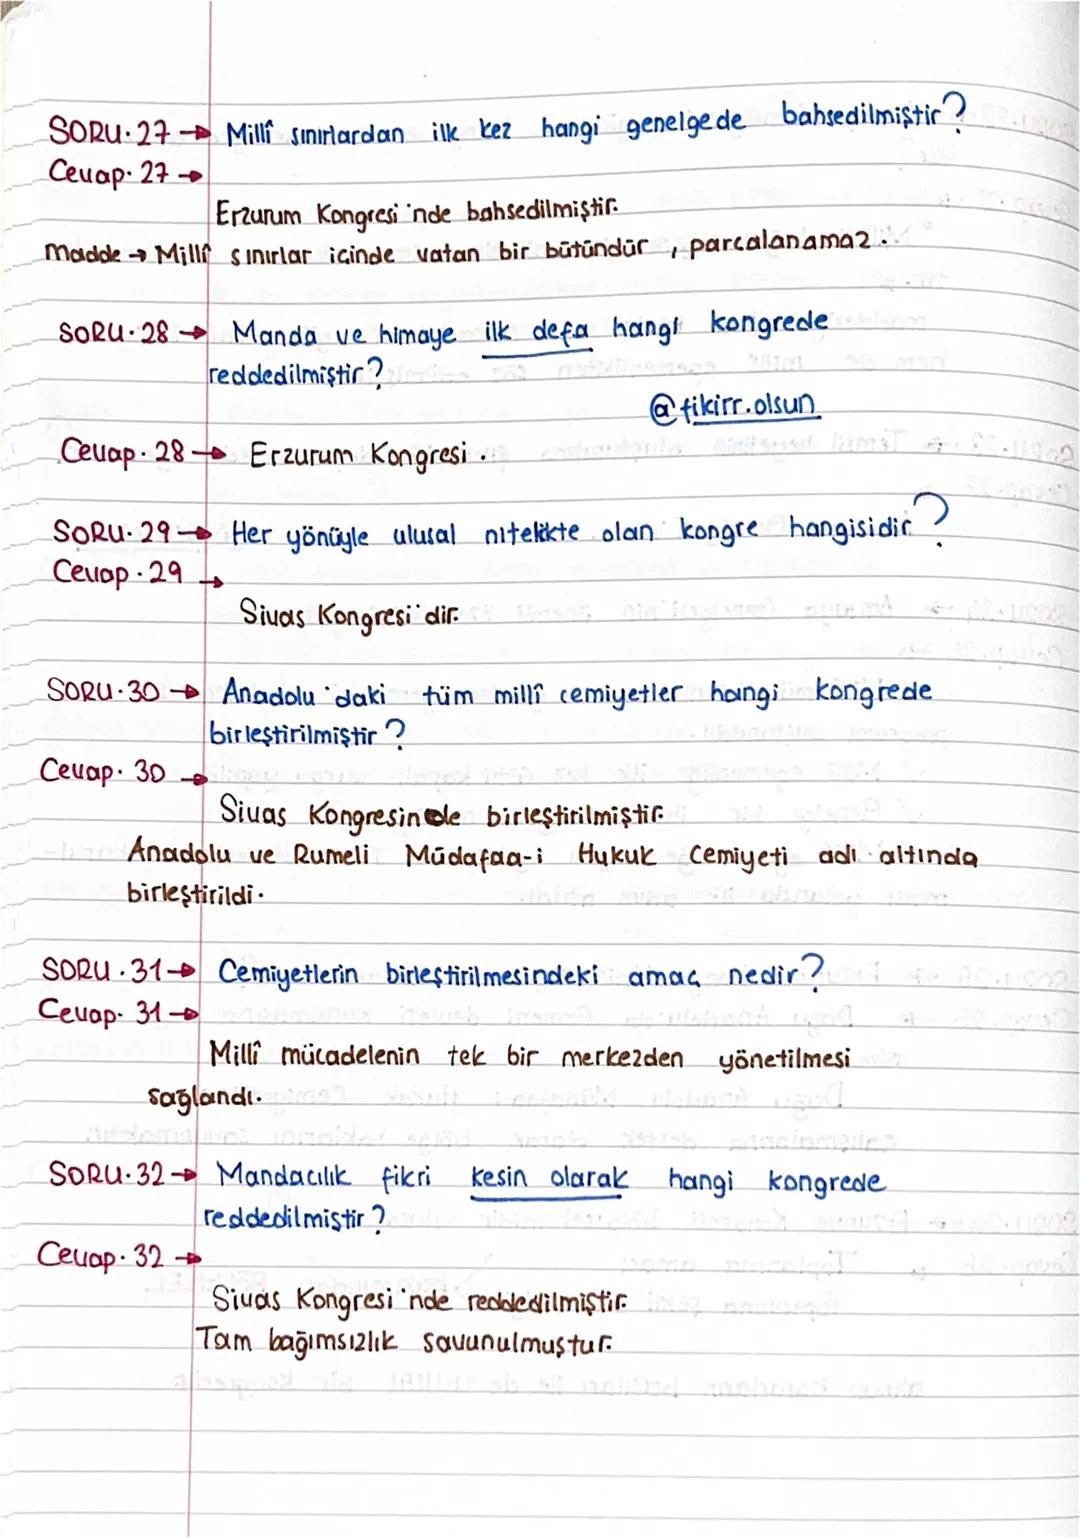 SORU.27 → Millî sınırlardan ilk kez hangi genelgede bahsedilmiştir?
Cevap.27 →
Erzurum Kongresi'nde bahsedilmiştir.
Madde → Millî sınırlar içinde vatan bir bütündür, parçalanamaz.
SORU.28 → Manda ve himaye ilk defa hangi kongrede
reddedilmiştir?
@fikirr.olsun
Cevap.28 → Erzurum Kongresi.
SORU.29 → Her yönüyle ulusal nitelikte olan kongre hangisidir?
Cevap.29 →
Sivas Kongresi'dir.
SORU.30 → Anadolu'daki tüm millî cemiyetler hangi kongrede
birleştirilmiştir?
Cevap.30 →
Sivas Kongresinde birleştirilmiştir.
Anadolu ve Rumeli Müdafaa-i Hukuk Cemiyeti adı altında
birleştirildi.
SORU.31 → Cemiyetlerin birleştirilmesindeki amaç nedir?
Cevap.31 →
Millî mücadelenin tek bir merkezden yönetilmesi
sağlandı.
SORU.32 → Mandacılık fikri kesin olarak hangi kongrede
reddedilmiştir?
Cevap.32 →
Sivas Kongresi'nde reddedilmiştir.
Tam bağımsızlık savunulmuştur.